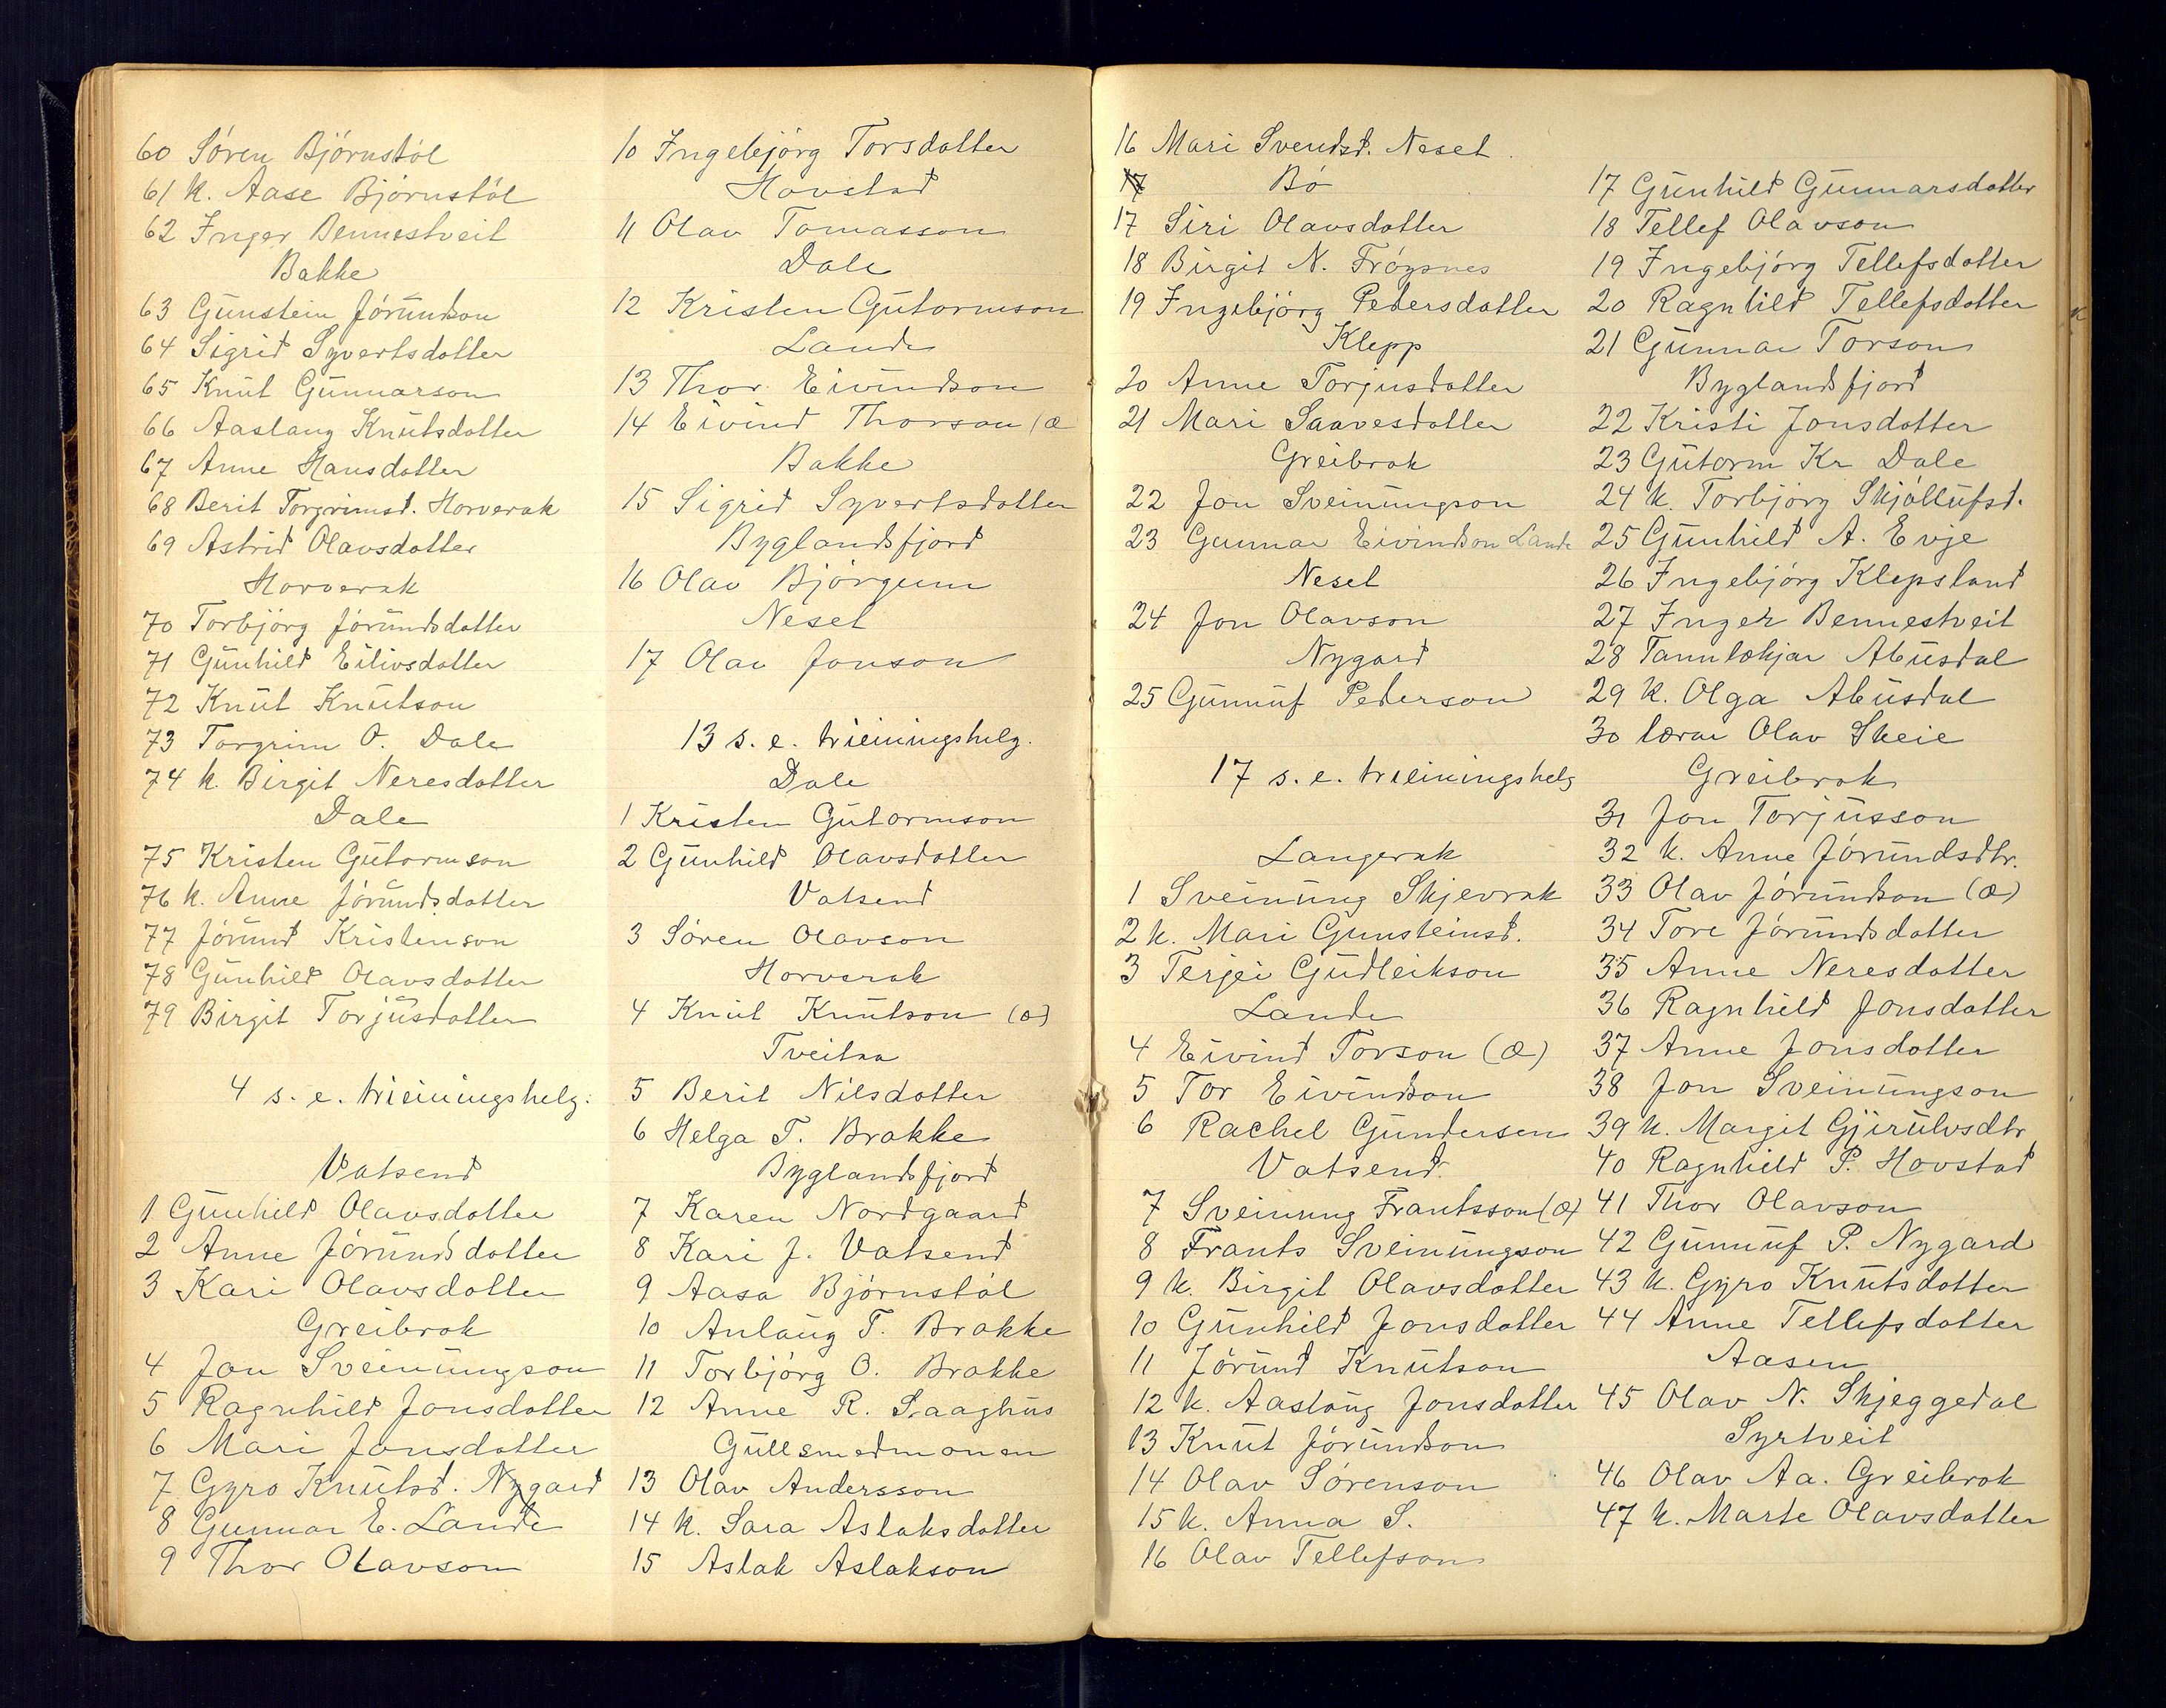 60 Søren Bjørnstøl
61 k. Aase Bjørnstøl
62 Inger Bennestveit
Bakke
63 Gunstein Jørundson
64 Sigrid Syvertsdotter
65 Knut Gunnarson
66 Aaslaug Knutsdotter
67 Anne Hansdotter
68 Berit Torgrimsd. Horverak
69 Astrid Olavsdotter
Horverak
70 Torbjørg Jørundsdotter
71 Gunhild Eilivsdotter
72 Knut Knutson
73 Torgrim O. Dale
74 k. Birgit Neresdotter
Dale
75 Kristen Gutormson
76 k. Anne Jørundsdotter
77 Jørund Kristenson
78 Gunhild Olavsdotter
79 Birgit Torjusdotter
4 s. e. trieiningshelg.
Vatsend
1 Gunhild Olavsdotter
2 Anne Jørundsdotter
3 Kari Olavsdotter
Greibrok
4 Jon Sveinungson
5 Ragnhild Jonsdotter
6 Mari Jonsdotter
7 Gyro Knutsd. Nygard
8 Gunnar E. Lande
9 Thor Olavson
10 Ingebjørg Torsdotter
Hovstad
11 Olav Tomasson
Dale
12 Kristen Gutormson
Lande
13 Thor Eivindson
14 Eivind Thorson (æ
Bakke
15 Sigrid Syvertsdotter
Byglandsfjord
16 Olav Bjørgum
Neset
17 Olav Jonson
13 s. e. trieiningshelg.
Dale
1 Kristen Gutormson
2 Gunhild Olavsdotter
Vatsend
3 Søren Olavson
Horverak
4 Knut Knutson (æ)
Tveitaa
5 Berit Nilsdotter
6 Helga T. Brokke
Byglandsfjord
7 Karen Nordgaard
8 Kari J. Vatsend
9 Aasa Bjørnstøl
10 Anlaug T. Brokke
11 Torbjørg O. Brokke
12 Anne R. Saaghus
Gullsmedmonen
13 Olav Andersson
14 k. Sara Aslaksdotter
15 Aslak Aslakson
16 Mari Svendsd. Neset.
17 Bø
17 Siri Olavsdotter
18 Birgit N. Frøysnes
19 Ingebjørg Pedersdotter
Klepp
20 Anne Torjusdotter
21 Mari Saavesdotter
Greibrok
22 Jon Sveinungson
23 Gunnar Eivindson Lande
Neset
24 Jon Olavson
Nygard
25 Gunnuf Pederson
17 s. e. trieiningshelg
Langerak
1 Sveinung Skjevrak
2 k. Mari Gunsteinsd.
3 Terjei Gudleikson
Lande
4 Eivind Torson (æ)
5 Tor Eivindson
6 Rachel Gundersen
Vatsend
7 Sveinung Frantsson (æ)
8 Frants Sveinungson
9 k. Birgit Olavsdotter
10 Gunhild Jonsdotter
11 Jørund Knutson
12 k. Aaslaug Jonsdotter
13 Knut Jørundson
14 Olav Sørenson
15 k. Anna S.
16 Olav Tellefson
17 Gunhild Gunnarsdotter
18 Tellef Olavson
19 Ingebjørg Tellefsdotter
20 Ragnhild Tellefsdotter
21 Gunnar Torson
Byglandsfjord
22 Kristi Jonsdotter
23 Gutorm Kr Dale
24 k. Torbjørg Skjøllufsd.
25 Gunhild A. Evje
26 Ingebjørg Klepsland
27 Inger Bennestveit
28 Tannlækjar Abusdal
29 k. Olga Abusdal
30 lærar Olav Skeie
Greibrok
31 Jon Torjusson
32 k. Anne Jørundsdtr.
33 Olav Jørundson (æ)
34 Tore Jørundsdotter
35 Anne Neresdotter
36 Ragnhild Jonsdotter
37 Anne Jonsdotter
38 Jon Sveinungson
39 k. Margit Gjirulvsdtr
40 Ragnhild P. Hovstad
41 Thor Olavson
42 Gunnuf P. Nygard
43 k. Gyro Knutsdotter
44 Anne Tellefsdotter
Aasen
45 Olav N. Skjeggedal
Syrtveit
46 Olav Aa. Greibrok
47 k. Marte Olavsdotter